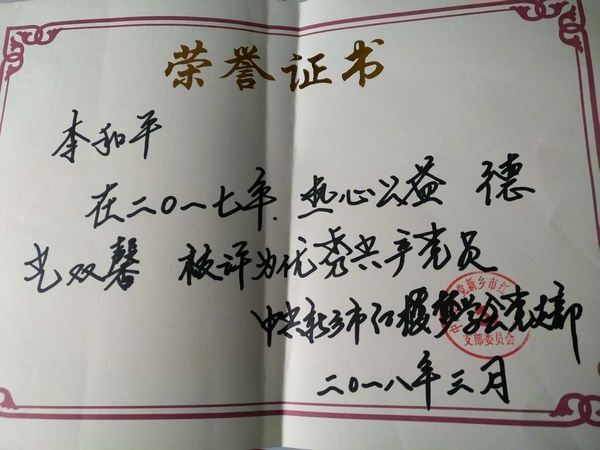 荣誉证书
李和平
在二〇一七年.热心公益 德
艺双馨 被评为优秀共产党员
中共新乡市红楼梦学会党支部
二〇一八年三月
支部委员会